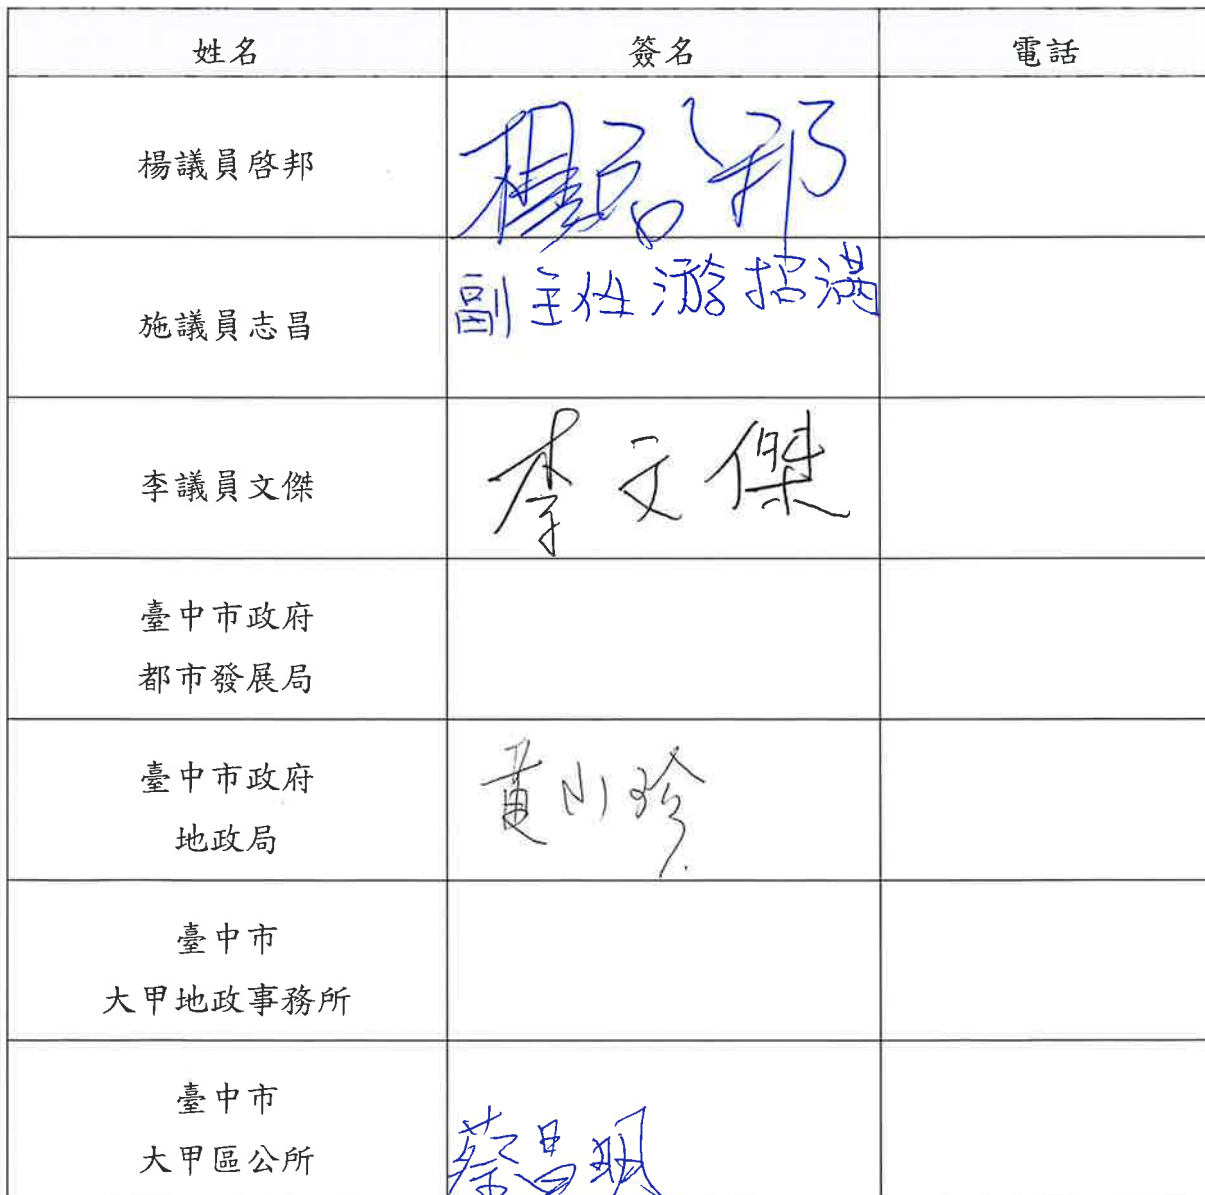 姓名 簽名 電話
楊議員啓邦 楊啓邦
施議員志昌 副主任游招滿
李議員文傑 李文傑
臺中市政府
都市發展局
臺中市政府 黃小珍
地政局
臺中市
大甲地政事務所
臺中市
大甲區公所 蔡昌明